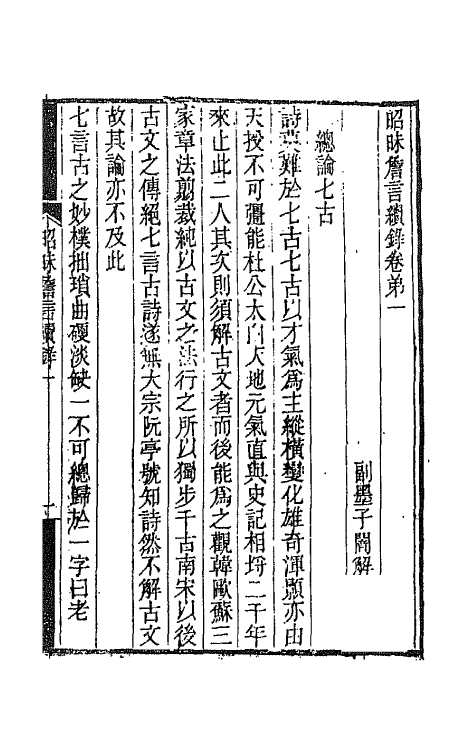 昭昧詹言續錄卷弟一
副墨子闇解
總論七古
詩莫難於七古七古以才氣爲主縱橫變化雄奇渾顥亦由
天授不可彊能杜公太白天地元氣直與史記相埒二千年
來止此二人其次則須解古文者而後能爲之觀韓歐蘇三
家章法翦裁純以古文之法行之所以獨步千古南宋以後
古文之傳絕七言古詩遂無大宗阮亭號知詩然不解古文
故其論亦不及此
七言古之妙樸拙瑣曲硬淡缺一不可總歸於一字曰老
昭昧詹言續錄一
一